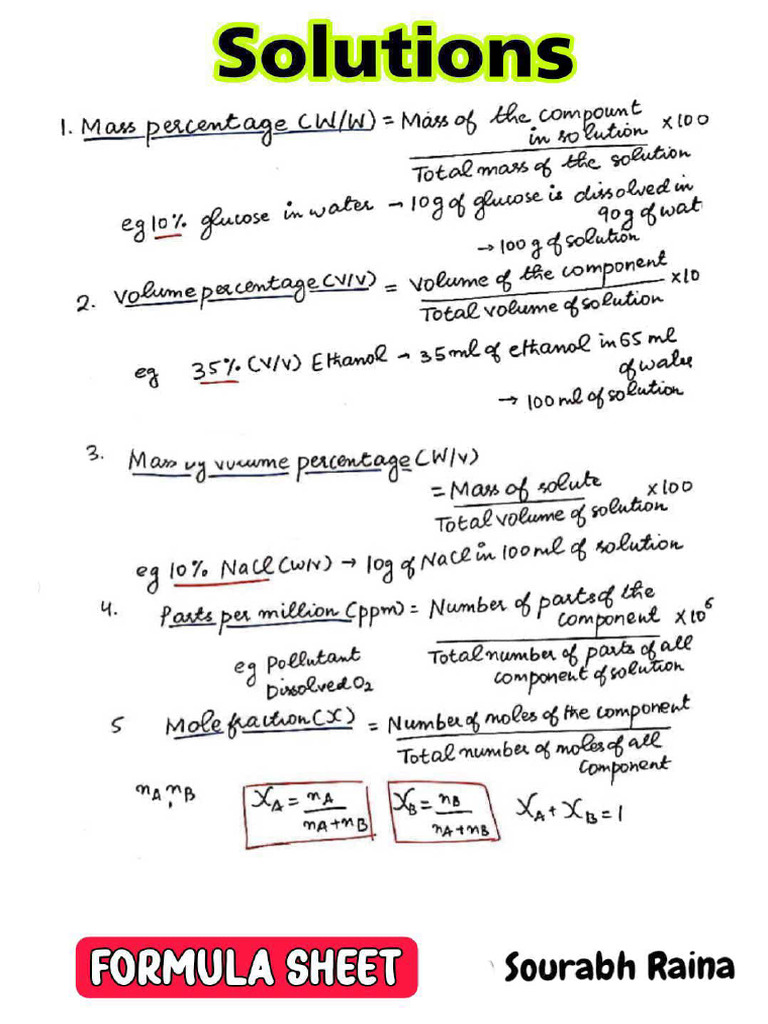 Solutions
1. Mass percentage (W/W) = Mass of the compount
in solution ×100
Total mass of the solution
eg 10% glucose in water → 10g of glucose is dissolved in
90g of wat
→ 100 g of solution
2. Volume percentage (V/V) = Volume of the component ×10
Total volume of solution
eg 35% (V/V) Ethanol → 35ml of ethanol in 65 ml
of water
→ 100 ml of solution
3. Mass by percentage (W/V)
= Mass of solute ×100
Total volume of solution
eg 10% NaCl (W/V) → 10g of NaCl in 100 ml of solution
4. Parts per million (ppm) = Number of parts of the
component ×10⁶
Total number of parts of all
component of solution
eg Pollutant
Dissolved O₂
5 Mole fraction (X) = Number of moles of the component
Total number of moles of all
component
nA, nB XA = nA/nA+nB XB = nB/nA+nB XA + XB = 1
FORMULA SHEET Sourabh Raina